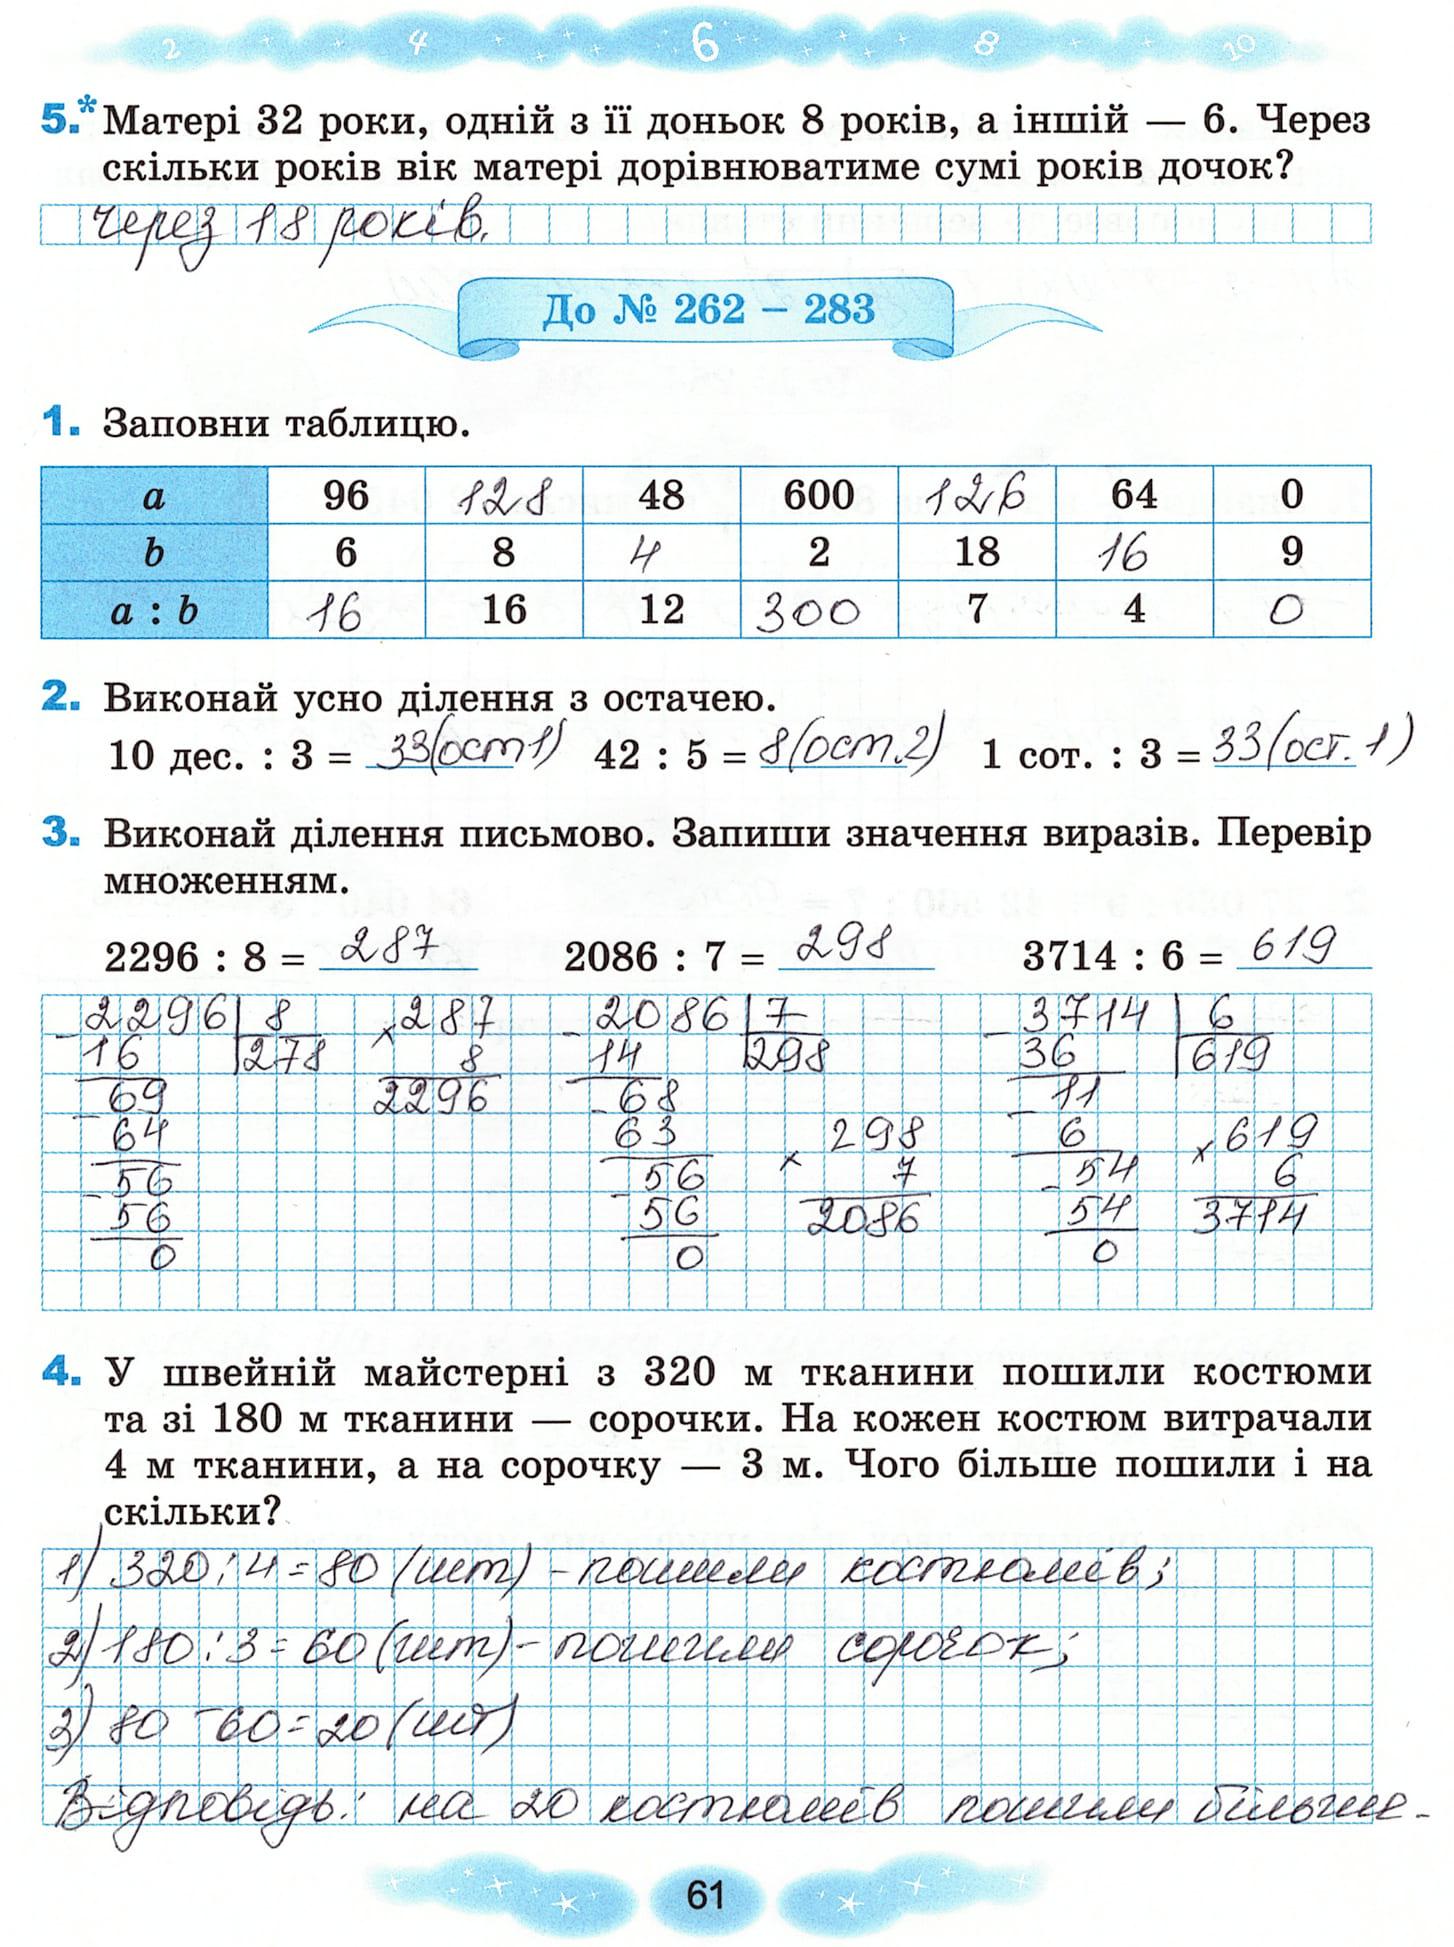 2 4 6 8 10
5.* Матері 32 роки, одній з її доньок 8 років, а іншій — 6. Через
скільки років вік матері дорівнюватиме сумі років дочок?
через 18 років.
До № 262 – 283
1. Заповни таблицю.
a 96 128 48 600 126 64 0
b 6 8 4 2 18 16 9
a : b 16 16 12 300 7 4 0
2. Виконай усно ділення з остачею.
10 дес. : 3 = 33(ост1) 42 : 5 = 8(ост.2) 1 сот. : 3 = 33(ост. 1)
3. Виконай ділення письмово. Запиши значення виразів. Перевір
множенням.
2296 : 8 = 287 2086 : 7 = 298 3714 : 6 = 619
- 2296 8 × 287 - 2086 7 - 3714 6
16 278 8 14 298 36 619
- 69 2296 - 68 - 11
64 63 298 6 × 619
- 56 - 56 × 7 - 54 6
56 56 2086 54 3714
0 0 0
4. У швейній майстерні з 320 м тканини пошили костюми
та зі 180 м тканини — сорочки. На кожен костюм витрачали
4 м тканини, а на сорочку — 3 м. Чого більше пошили і на
скільки?
1) 320 : 4 = 80 (шт) - пошили костюмів;
2) 180 : 3 = 60 (шт) - пошили сорочок;
3) 80 - 60 = 20 (шт)
Відповідь: на 20 костюмів пошили більше.
61